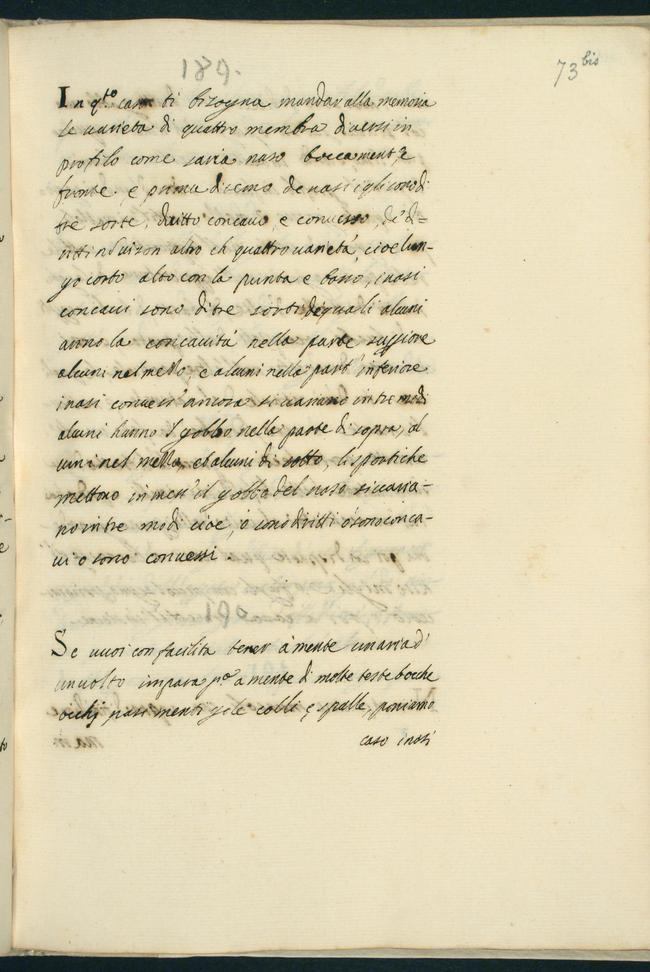 73 bis
189.
In q.to caso ti bisogna mandar alla memoria
le varieta di quattro membra diversi in
profilo come saria naso bocca ment' e
fronte. e prima diremo de nasi i quali sono di
tre sorte, dritto concavo, e convesso, de' di=
ritti non vi son altro ch quattro varietà, cioè lun-
go corto alto con la punta e basso, i nasi
concavi sono di tre sorti de quali alcuni
anno la concavità nella parte suppiore
alcuni nel mezzo, e alcuni nella part' inferiore
i nasi convessi ancora si variano in tre modi
alcuni hanno 'l gobbo nella parte di sopra, al
cuni nel mezzo, et alcuni di sotto, li sporti che
mettono in mezz' il gobbo del naso si varia-
no in tre modi cioe, o sono diritti o sono conca-
vi o sono convessi
Se vuoi con facilita tener à mente un aria d'
un volto impara p.o a mente di molte teste bocche
occhij nasi menti gole colli e spalle, poniamo
caso i nasi